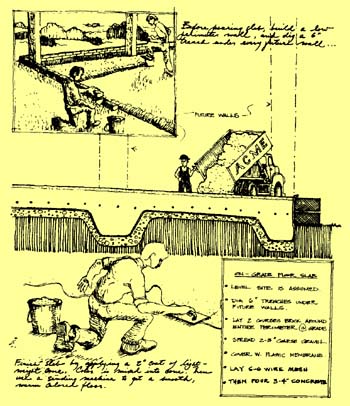 Before pouring slab, build a low
perimeter wall, and dig a 6"
trench under every future wall...
FUTURE WALLS
ACME
ON-GRADE FLOOR SLAB
• LEVEL SITE IS ASSUMED.
• DIG 6" TRENCHES UNDER
FUTURE WALLS.
• LAY 2 COURSES BRICK AROUND
ENTIRE PERIMETER, @ GRADE.
• SPREAD 2-3" COARSE GRAVEL.
• COVER W. PLASTIC MEMBRANE.
• LAY 6-6 WIRE MESH
• THEN POUR 3-4" CONCRETE
Finish slab by applying a 2" coat of light-
weight conc. Color is mixed into conc. Then
use a sanding machine to get a smooth,
warm colored floor.